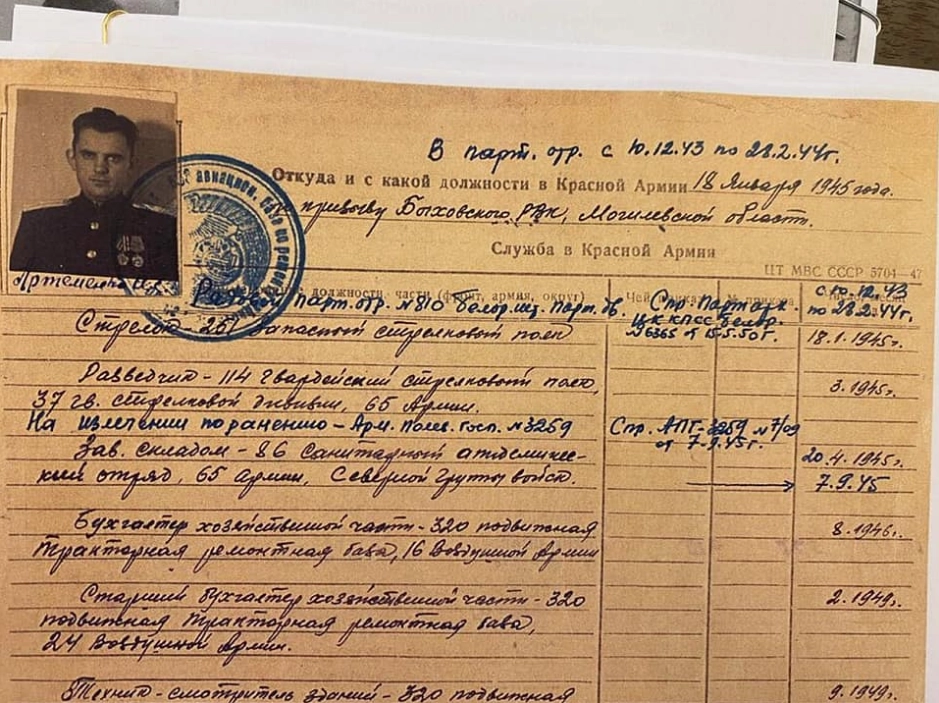 В парт. отр. с 10.12.43 по 28.2.44г.
Откуда и с какой должности в Красной Армии 18 Января 1945 года.
призыву Быховского РВК, Могилевской области.
Служба в Красной Армии
ЦТ МВС СССР 5704—47
Артеменко
должности, части (фронт, армия, округ)
парт. отр. №810 Белор. шт. парт. дв.
Спр. Парт арх.
ЦК КПСС Белор.
№6365 от 15.5.50г.
с 10.12.43
по 28.2.44г.
Стрелок - 261 запасной стрелковый полк
18.1.1945г.
Разведчик - 114 гвардейский стрелковый полк,
3.1945г.
37 гв. стрелковой дивизии, 65 Армии.
На излечении по ранению - Арм. полев. госп. №3259
Спр. АПГ-3259 №7/09
от 7.9.45г.
Зав. складом - 86 санитарный
20.4.1945г.
отряд, 65 армии, Северной Группы войск.
7.9.45
Бухгалтер хозяйственной части - 320 подвижная
8.1946г.
тракторная ремонтная база, 16 Воздушной Армии
Старший бухгалтер хозяйственной части - 320
2.1949г.
подвижная тракторная ремонтная база,
24 Воздушной Армии.
Техник - смотритель зданий - 320 подвижная
9.1949г.